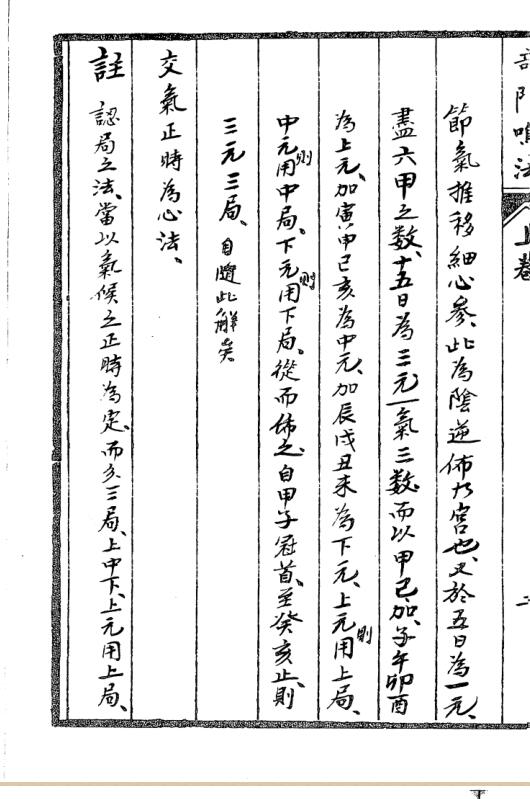 上卷
節氣推移細心參、此為陰逆佈九宮也、又於五日為一元、
盡六甲之数、十五日為三元、一氣三数、而以甲己加、子午卯酉
為上元、加寅申己亥為中元、加辰戌丑未為下元、上元則用上局、
中元則用中局、下元則用下局、從而佈之、自甲子冠首、至癸亥止、則
三元三局、自隨此解矣
交氣正時為心法、
註 認局之法、當以氣候之正時為定、而分三局、上中下、上元用上局、